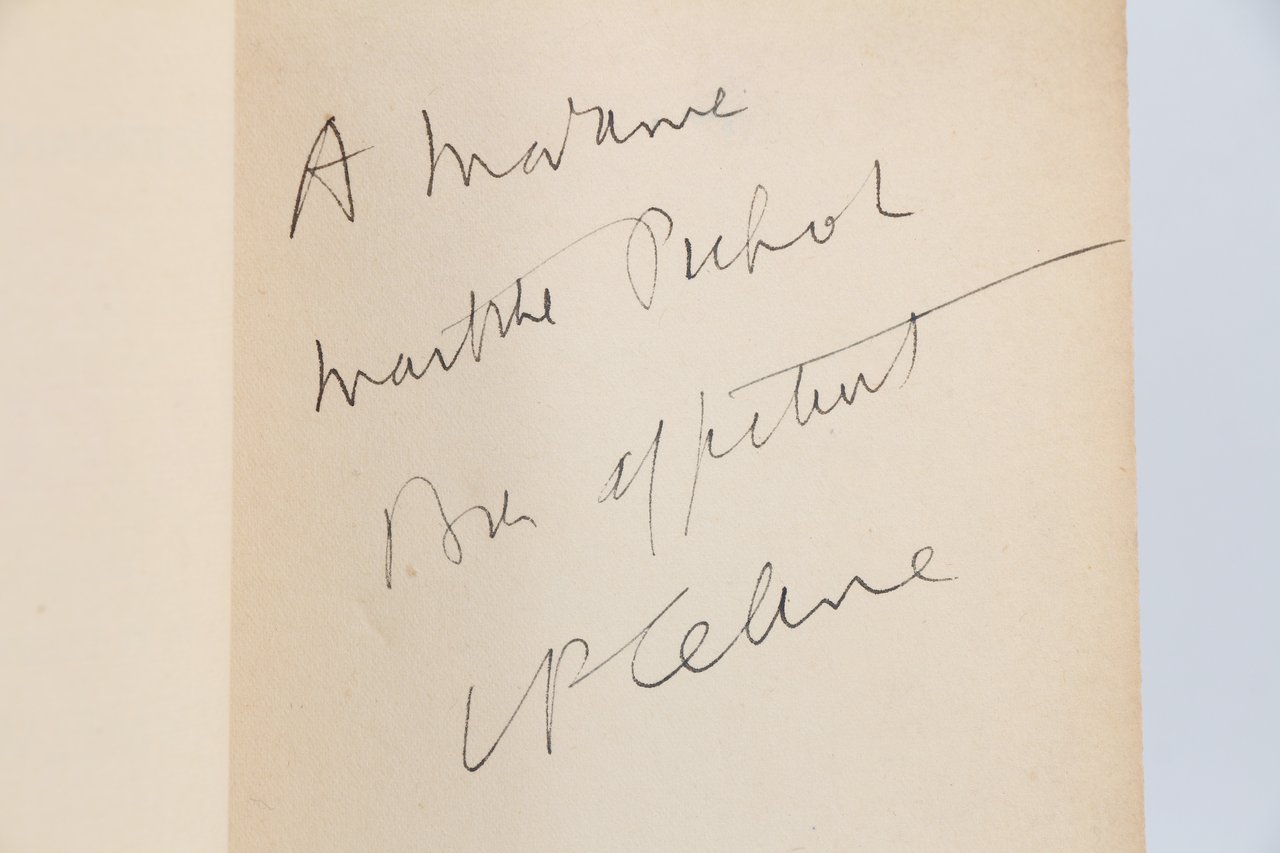 A Madame
Marthe Pichot
Bon appetit
LF Celine